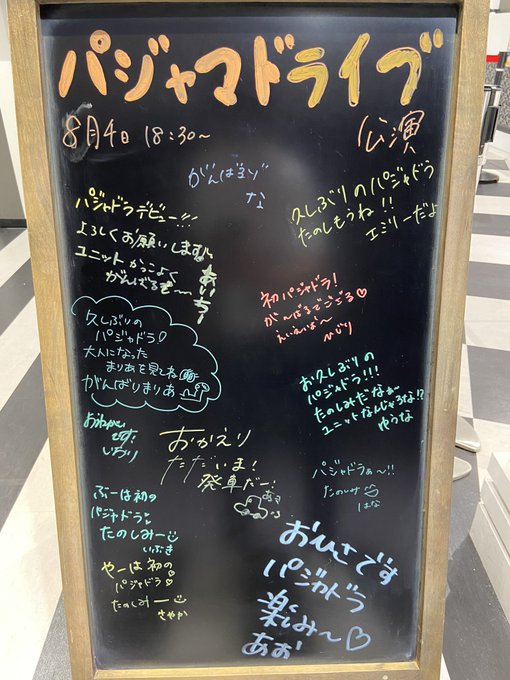 パジャマドライブ
8月4日 18:30~
公演
がんばるゾ
な
久しぶりのパジャドラ
たのしもうね!!
エミリーだよ
パジャドラデビュー!!!
よろしくお願いします!!
ユニットかっこよく
がんばるぞ〜
あいちー
初パジャドラ!
がんばるでごごろ♡
ひじり
久しぶりの
パジャドラ!
大人になった
まりあを見てね
がんばりまりあ
お久しぶりの
パジャドラ!!!
たのしみだなぁ〜
ユニットなんじゃろな!?
ゆうな
おねがい
です!
いおり
おかえり
ただいま!
発車だー!
パジャドラぁ〜!!
たのしみ
はな
ぶーは初の
パジャドラ!
たのしみー
いぶき
やーは初の
パジャドラ♡
たのしみー
さやか
おひさです
パジャドラ
楽しみ〜♡
あお